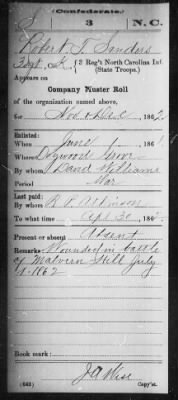 (Confederate.)
S 3 N.C.
Robert T. Sanders
3 Reg't North Carolina Inf.
(State Troops.)
Appears on
Company Muster Roll
of the organization named above,
for Nov & Dec, 1862.
Enlisted:
When June 1, 1861.
Where
By whom David Williams
Period War
Last paid:
By whom R. P. Atkinson
To what time Apr 30, 186
Present or absent Absent
Remarks: Wounded in battle
of Malvern Hill July
1-1862
Book mark:
J A Wise
(642) Copyist.